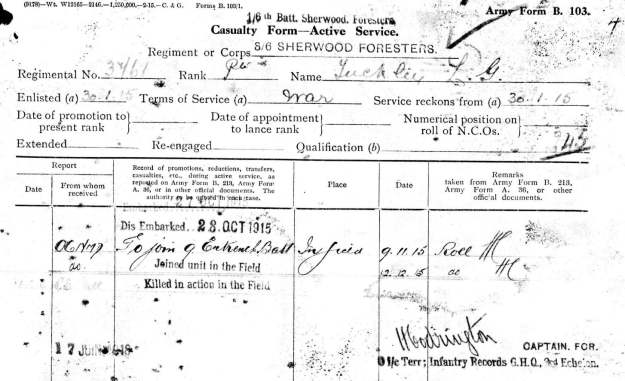 (9178)—Wt. W12165—2146.—1,250,000.—2-15.—C. & G. Forms B. 103/1.
1/6th Batt. Sherwood Foresters
Army Form B. 103.
Casualty Form—Active Service.
Regiment or Corps 8/6 SHERWOOD FORESTERS.
Regimental No. Rank Pte Name L. G.
Enlisted (a) 30.1.15 Terms of Service (a) War Service reckons from (a) 30.1.15
Date of promotion to present rank
Date of appointment to lance rank
Numerical position on roll of N.C.Os.
Extended Re-engaged Qualification (b)
Report
Date
From whom received
Record of promotions, reductions, transfers, casualties, etc., during active service, as reported on Army Form B. 213, Army Form A. 36, or in other official documents. The authority to be quoted in each case.
Place
Date
Remarks
taken from Army Form B. 213, Army Form A. 36, or other official documents.
Dis Embarked 28 OCT 1915
To join 9 Entrench Batt In field 9.11.15 Roll
do Joined unit in the Field 12.12.15 do
Killed in action in the Field
17 JUN
CAPTAIN. FOR.
O i/c Terr; Infantry Records G.H.Q., 3rd Echelon.